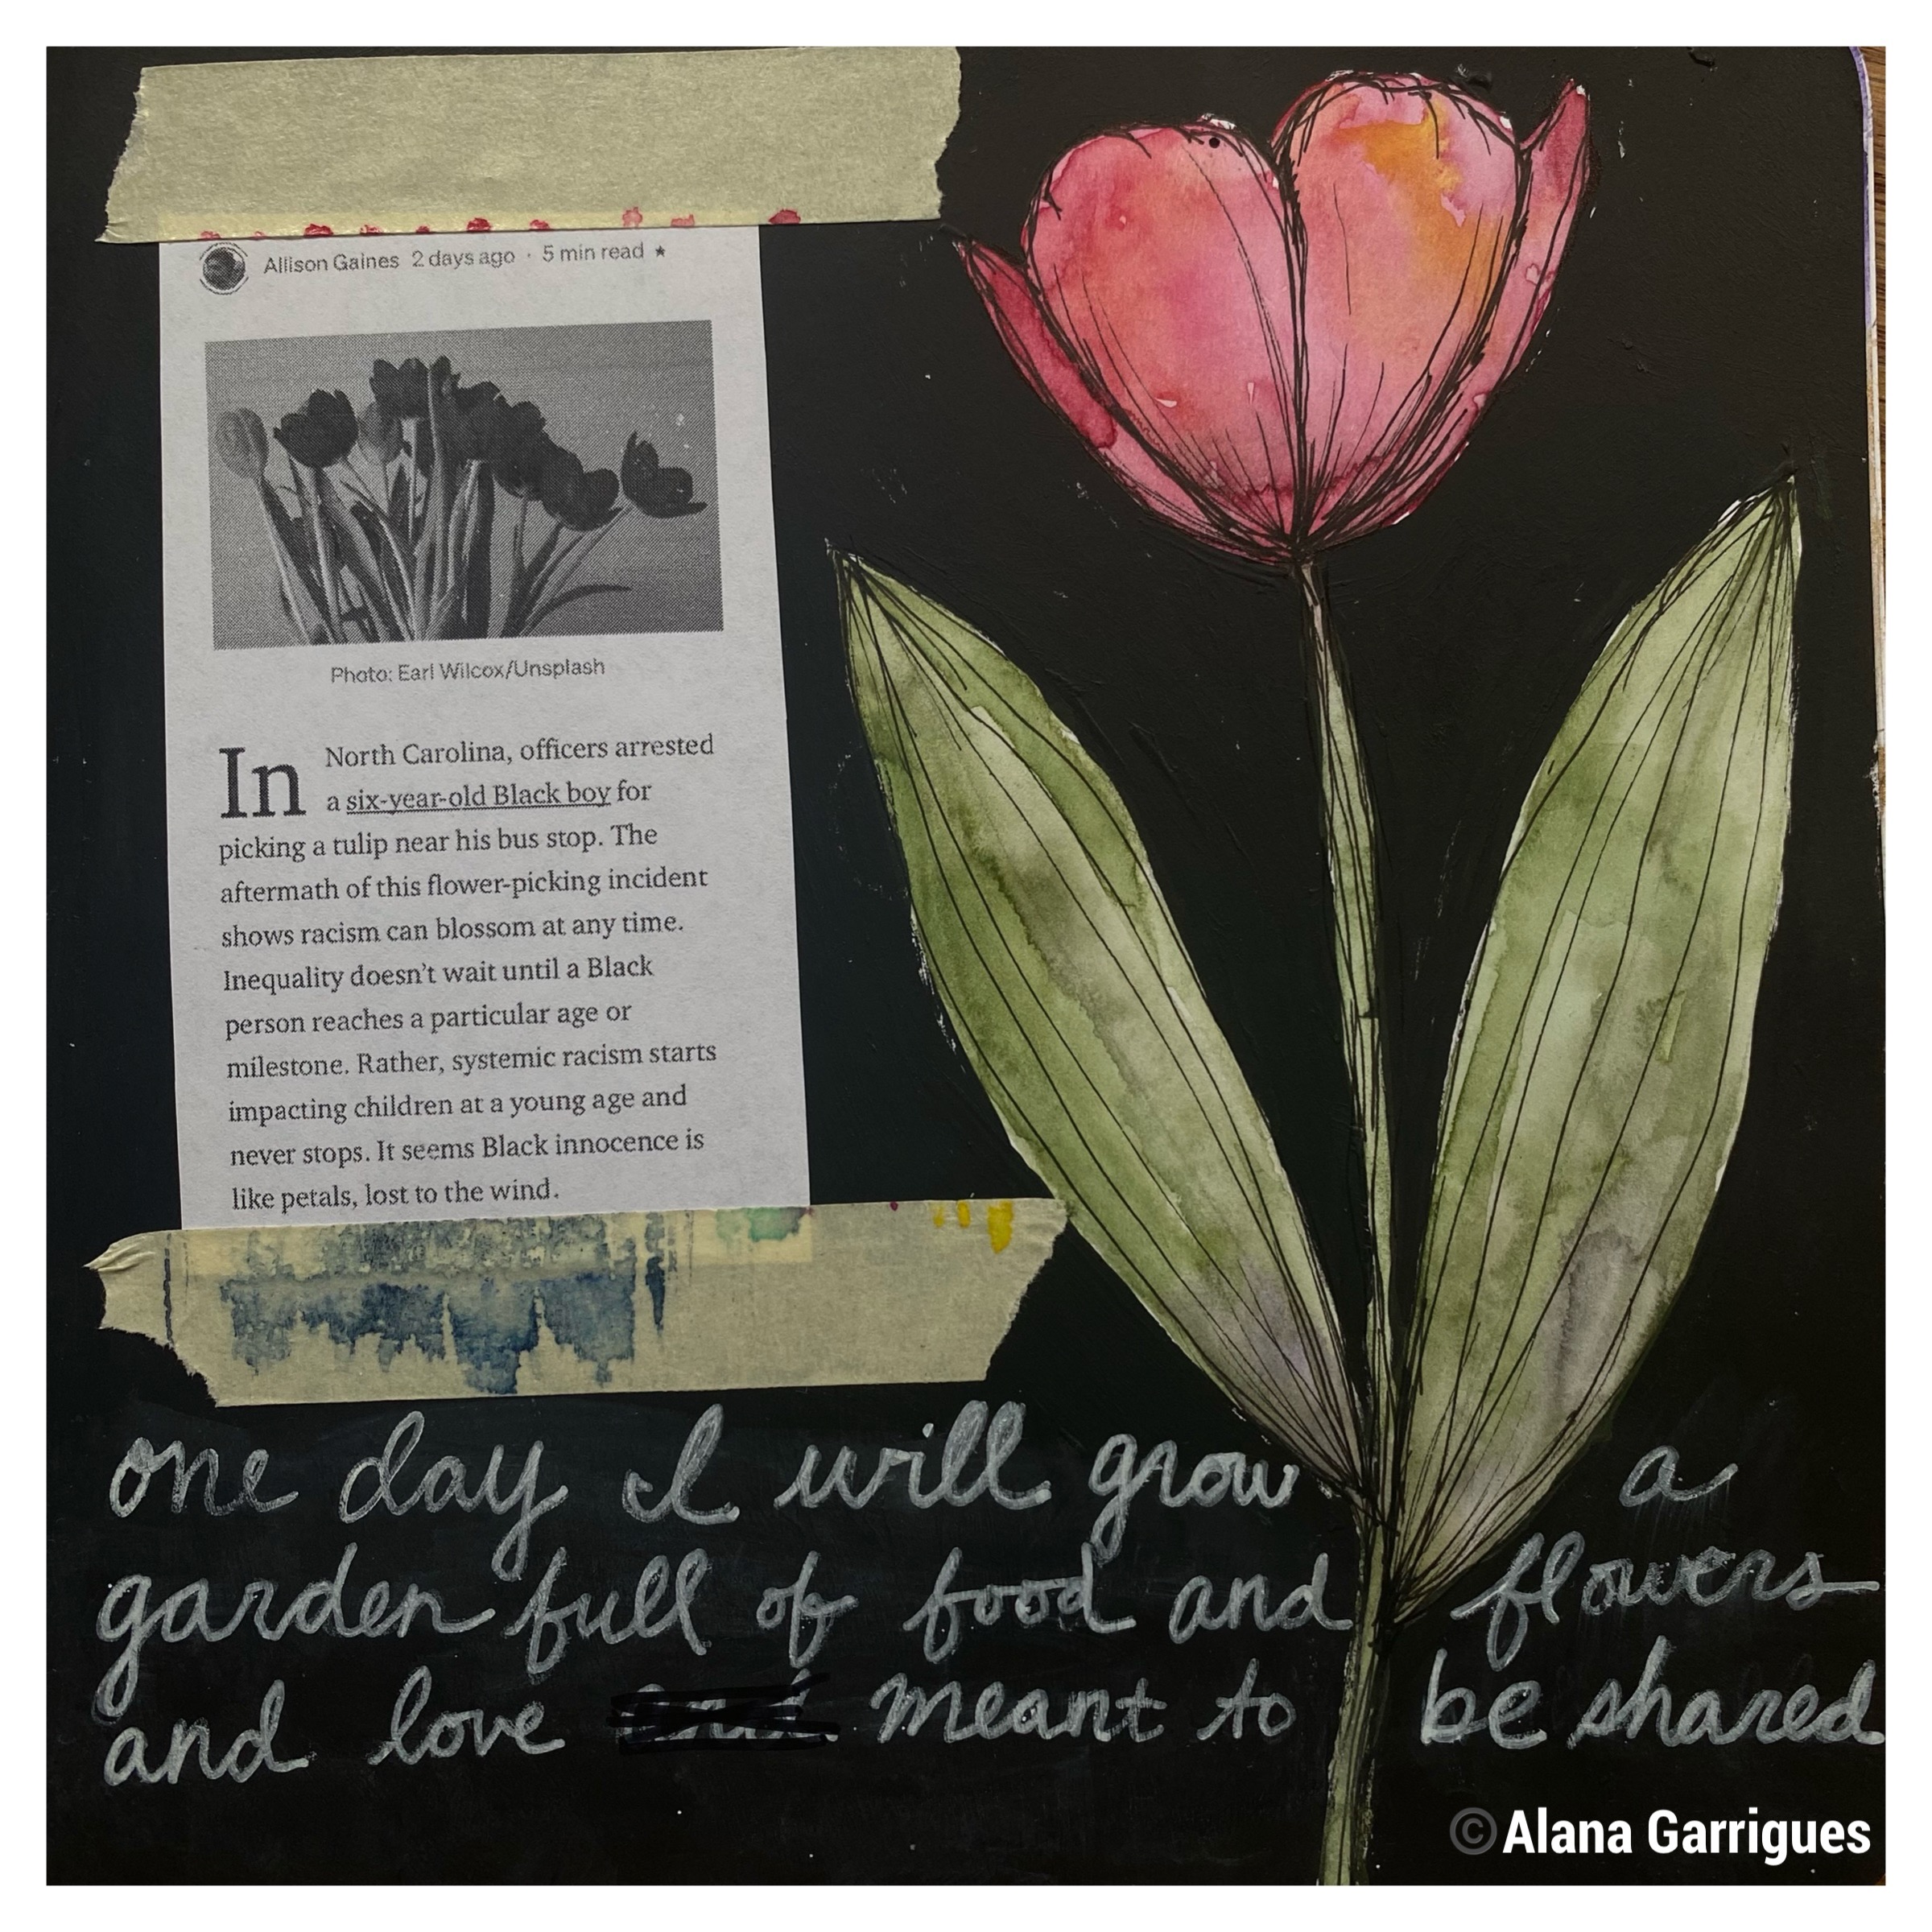 Allison Gaines 2 days ago · 5 min read ★
Photo: Earl Wilcox/Unsplash
In North Carolina, officers arrested
a six-year-old Black boy for
picking a tulip near his bus stop. The
aftermath of this flower-picking incident
shows racism can blossom at any time.
Inequality doesn't wait until a Black
person reaches a particular age or
milestone. Rather, systemic racism starts
impacting children at a young age and
never stops. It seems Black innocence is
like petals, lost to the wind.
one day I will grow a
garden full of food and flowers
and love meant to be shared
©Alana Garrigues